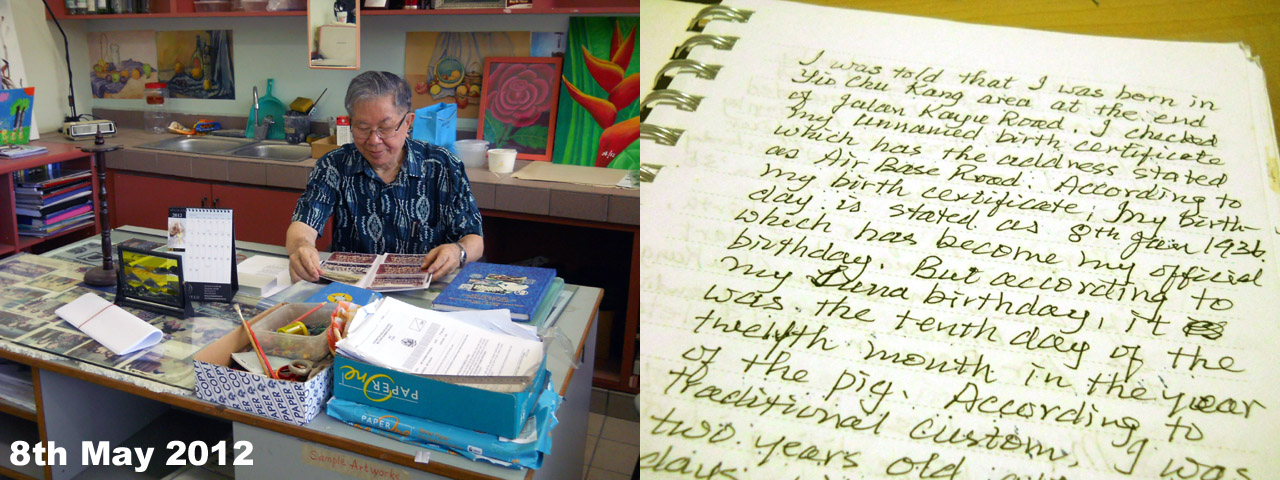 8th May 2012
2012
PAPER One
PAPER
COPY PAPER
Sample Artworks
I was told that I was born in
Yio Chu Kang area at the end
of Jalan Kayu Road. I checked
my unnamed birth certificate
which has the address stated
as Air Base Road. According to
my birth certificate, my birth-
day is stated as 8th Jan 1936.
which has become my official
birthday. But according to
my Luna birthday, it
was the tenth day of the
twelfth month in the year
of the pig. According to
traditional custom, I was
two years old
days